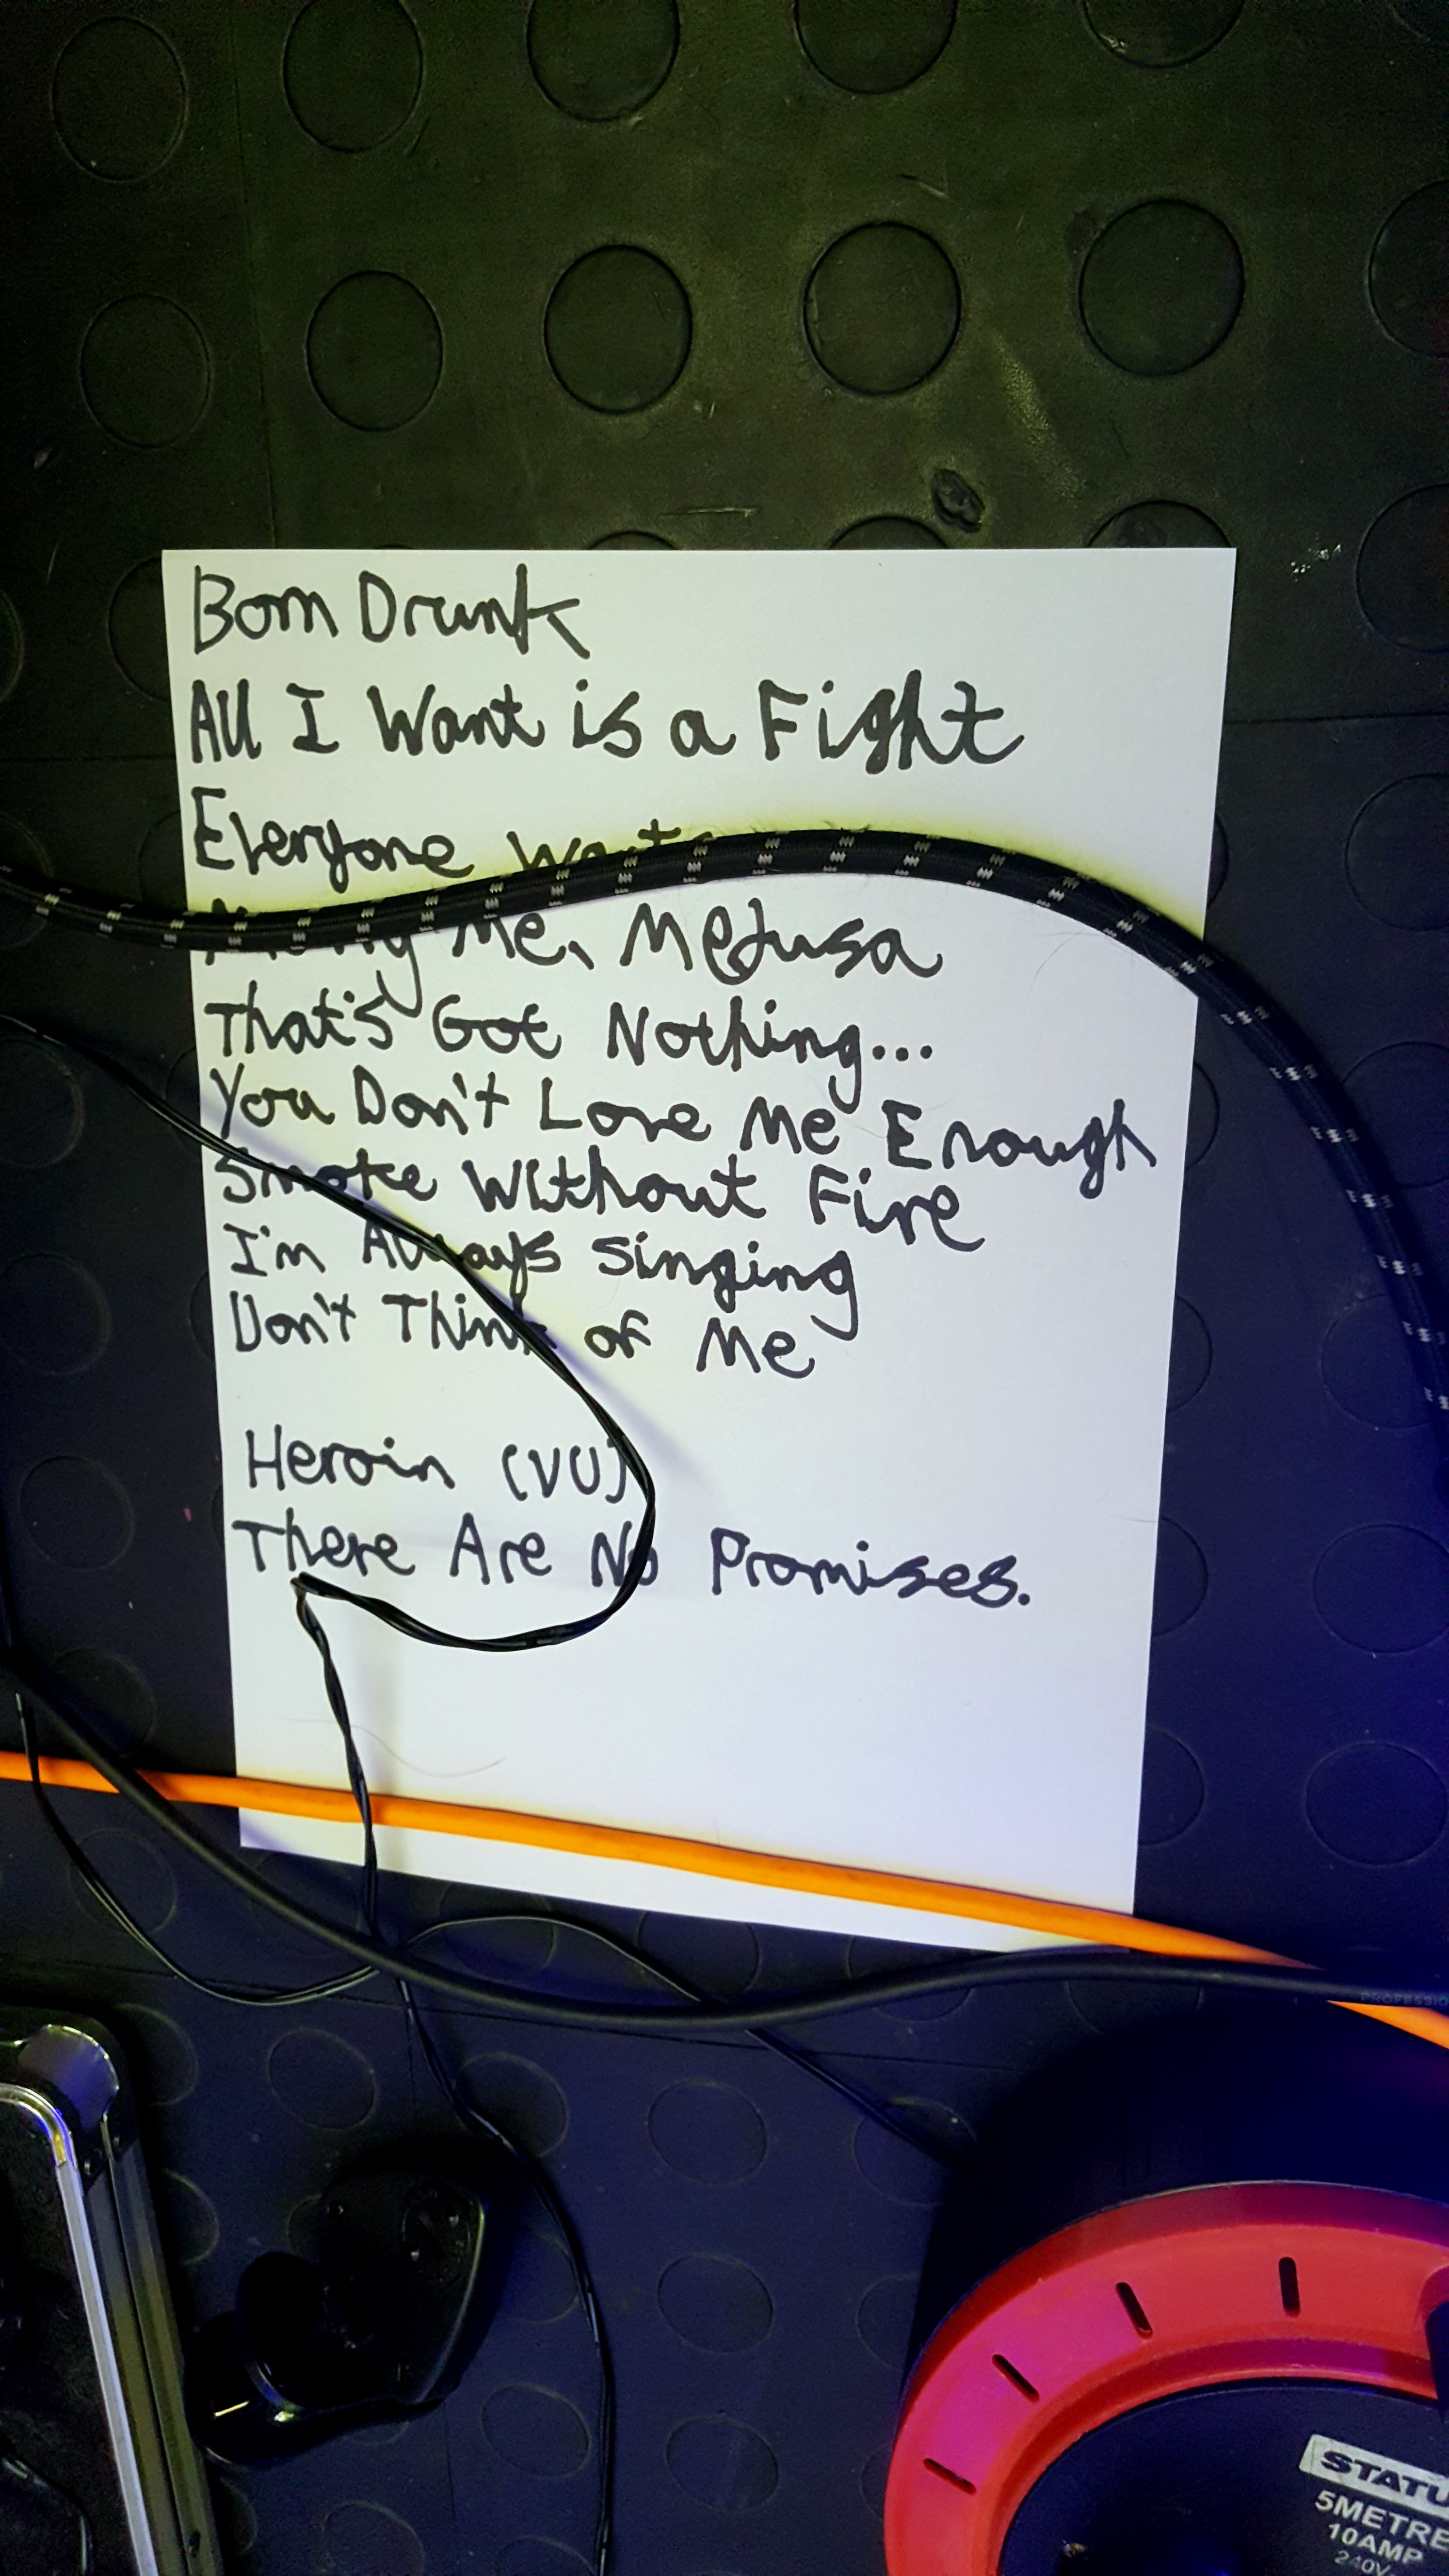 Born Drunk
All I Want is a Fight
Everyone Wants
Marry Me, Medusa
That's Got Nothing...
You Don't Love Me Enough
Smoke Without Fire
I'm Always Singing
Don't Think of Me
Heroin (VU)
There Are No Promises.
PROFESSIO
STATU
5METRE
10AMP
240V